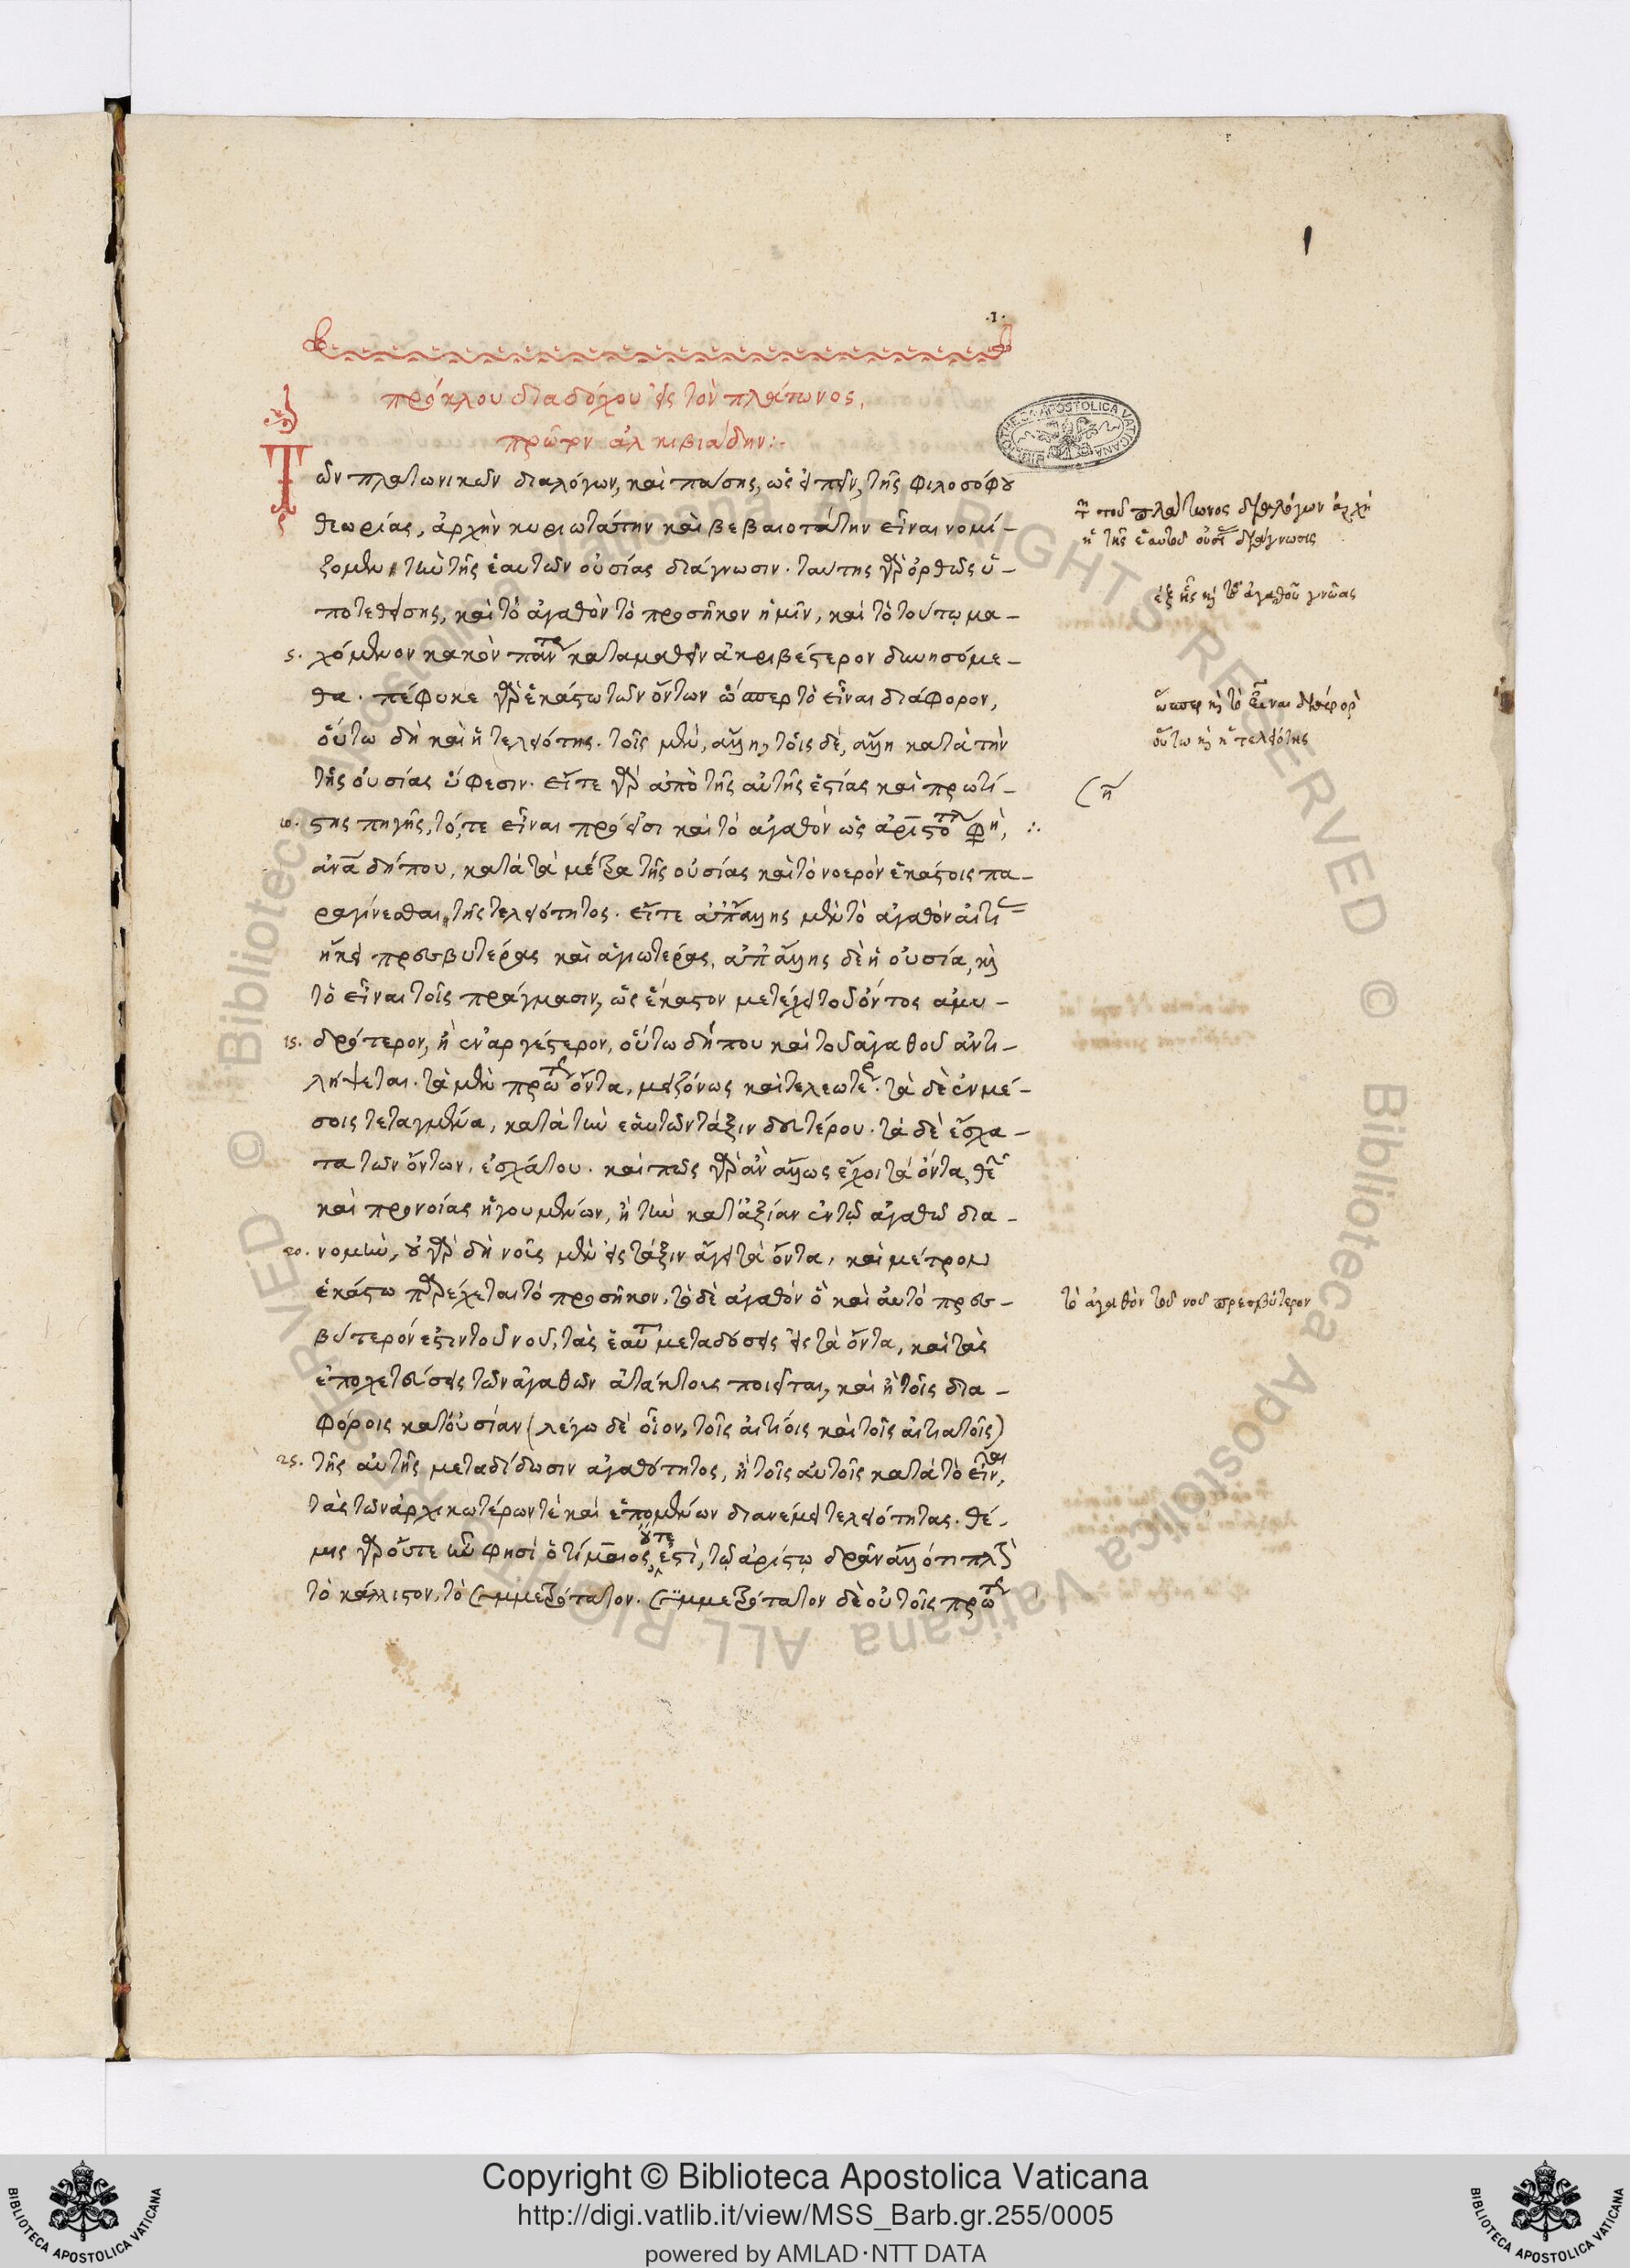 1
·1·
πρόκλου διαδόχου εἰς τὸν πλάτωνος,
πρῶτον ἀλκιβιάδην:·
Τῶν πλατωνικῶν διαλόγων, καὶ πάσης, ὡς εἰπεῖν, τῆς φιλοσόφου
θεωρίας, ἀρχὴν κυριωτάτην καὶ βεβαιοτάτην εἶναι νομί-
ζομεν, τὴν τῆς ἑαυτῶν οὐσίας διάγνωσιν. ταύτης γὰρ ὀρθῶς ὑ-
ποτεθείσης, καὶ τὸ ἀγαθὸν τὸ προσῆκον ἡμῖν, καὶ τὸ τούτῳ μα-
5. χόμενον κακὸν πάντως καταμαθεῖν ἀκριβέστερον δυνησόμε-
θα. πέφυκε γὰρ ἑκάστω τῶν ὄντων ὥσπερ τὸ εἶναι διάφορον,
οὕτω δὴ καὶ ἡ τελειότης. τοῖς μὲν, ἄλλη, τοῖς δὲ, ἄλλη κατὰ τὴν
τῆς οὐσίας ὕφεσιν. εἴτε γὰρ ἀπὸ τῆς αὐτῆς ἑστίας καὶ πρωτί-
10. στης πηγῆς, τό, τε εἶναι πρόεισι καὶ τὸ ἀγαθὸν ὡς ἀριστοτέλης φη,
ἀνάγκη δήπου, κατὰ τὰ μέτρα τῆς οὐσίας καὶ τὸ νοερὸν ἑκάστοις πα-
ραγίνεσθαι, τῆς τελειότητος. εἴτε ἀπ' ἄλλης μὲν τὸ ἀγαθὸν αἰτίας
ἥκει πρεσβυτέρας καὶ ἁγιωτέρας, ἀπ' ἄλλης δὲ ἡ οὐσία, καὶ
τὸ εἶναι τοῖς πράγμασιν, ὡς ἕκαστον μετέχει τοῦ ὄντος ἀμυ-
15. δρότερον, ἢ ἐναργέστερον, οὕτω δήπου καὶ τοῦ ἀγαθοῦ ἀντι-
λήψεται. τὰ μὲν πρώτως ὄντα, μειζόνως καὶ τελεωτέρως. τὰ δὲ ἐν μέ-
σοις τεταγμένα, κατὰ τὴν ἑαυτῶν τάξιν δευτέρου. τὰ δὲ ἔσχα-
τα τῶν ὄντων, ἐσχάτου. καὶ πῶς γὰρ ἂν ἄλλως ἔχοι τὰ ὄντα, θεοῦ
καὶ προνοίας ἡγουμένων, ἢ τὴν κατ' ἀξίαν ἐν τῷ ἀγαθῷ δια-
20. νομὴν, οὐ γὰρ δὴ νοῦς μὲν εἰς τάξιν ἄγει τὰ ὄντα, καὶ μέτρον
ἑκάστω παρέχεται τὸ προσῆκον. τὸ δὲ ἀγαθὸν ὃ καὶ αὐτὸ πρεσ-
βύτερόν ἐστιν τοῦ νοῦ, τὰς ἑαυτοῦ μεταδόσεις εἰς τὰ ὄντα, καὶ τὰς
ἐποχετεύσεις τῶν ἀγαθῶν ἀτάκτους ποιεῖται, καὶ ἢ τοῖς δια-
φόροις κατ' οὐσίαν (λέγω δὲ οἷον, τοῖς αἰτίοις καὶ τοῖς αἰτιατοῖς)
25. τῆς αὐτῆς μεταδίδωσιν ἀγαθότητος, ἢ τοῖς αὐτοῖς κατὰ τὸ εἶναι,
τὰς τῶν ἀρχικωτέρων τὲ καὶ ἑπομένων διανέμει τελειότητας. θέ-
μις γὰρ οὔτε ἦν φησὶ ὁ τίμαιος, οὔτε ἐστὶ, τῷ ἀρίστῳ δρᾶν ἄλλό τι πλὴν
τὸ κάλλιστον, τὸ συμμετρότατον. συμμετρότατον δὲ οὐ τοῖς πρώτως
τῶν τοῦ πλάτωνος διαλόγων ἀρχὴ
ἡ τῆς ἑαυτοῦ οὐσίας διάγνωσις
ἐξ ἧς καὶ τοῦ ἀγαθοῦ γνῶσις
ὥσπερ καὶ τὸ εἶναι διάφορον
οὕτω καὶ ἡ τελειότης
τὸ ἀγαθὸν τοῦ νοῦ πρεσβύτερον
BIBLIOTHECA APOSTOLICA VATICANA
© Biblioteca Apostolica Vaticana ALL RIGHTS RESERVED
© Biblioteca Apostolica Vaticana ALL RIGHTS RESERVED
BIBLIOTECA APOSTOLICA VATICANA
Copyright © Biblioteca Apostolica Vaticana
http://digi.vatlib.it/view/MSS_Barb.gr.255/0005
powered by AMLAD·NTT DATA
BIBLIOTECA APOSTOLICA VATICANA